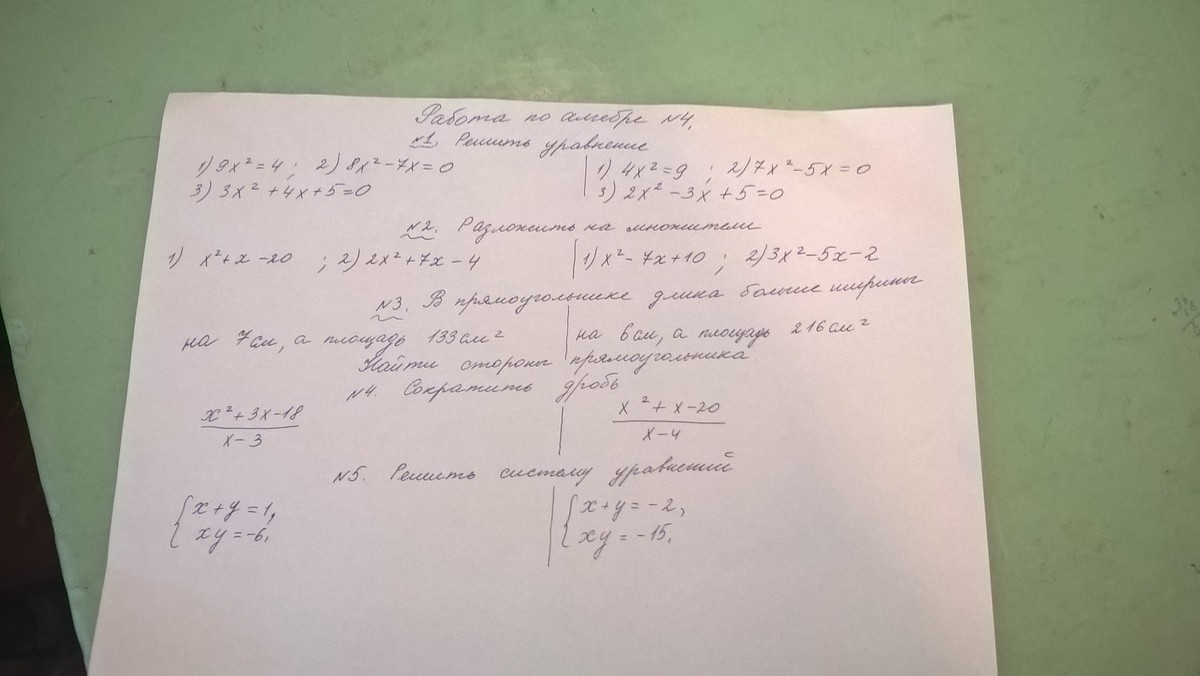 Работа по алгебре №4.
№1. Решить уравнение
1) 9x² = 4 ; 2) 8x² - 7x = 0 | 1) 4x² = 9 ; 2) 7x² - 5x = 0
3) 3x² + 4x + 5 = 0 | 3) 2x² - 3x + 5 = 0
№2. Разложить на множители
1) x² + x - 20 ; 2) 2x² + 7x - 4 | 1) x² - 7x + 10 ; 2) 3x² - 5x - 2
№3. В прямоугольнике длина больше ширины
на 7см, а площадь 133см² | на 6см, а площадь 216см²
Найти стороны прямоугольника
№4. Сократить дробь
x² + 3x - 18 | x² + x - 20
x - 3 | x - 4
№5. Решить систему уравнений
{ x + y = 1, | { x + y = -2,
xy = -6. | xy = -15.